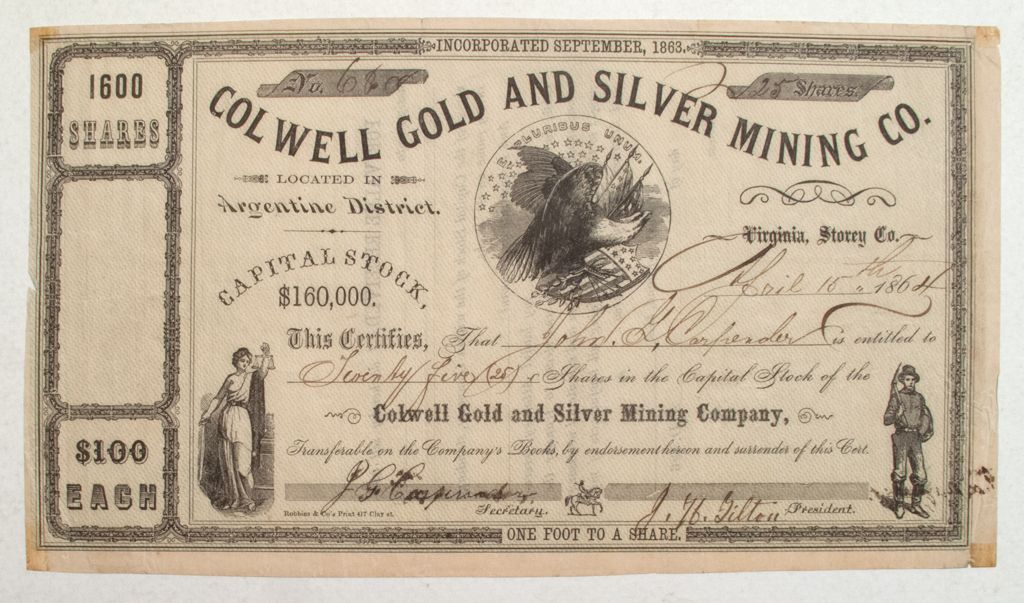 INCORPORATED SEPTEMBER, 1863.
1600
SHARES
No.
25 Shares.
COLWELL GOLD AND SILVER MINING CO.
E PLURIBUS UNUM.
LOCATED IN
Argentine District.
Virginia, Storey Co.
April 15th 1864
CAPITAL STOCK,
$160,000.
This Certifies, That John. G. Carpender is entitled to
Twenty five (25) Shares in the Capital Stock of the
Colwell Gold and Silver Mining Company,
Transferable on the Company's Books, by endorsement hereon and surrender of this Cert.
$100
EACH
J G Carpender
Secretary.
J. H. Tilton
President.
Robbins & Co's Print 417 Clay st.
ONE FOOT TO A SHARE.